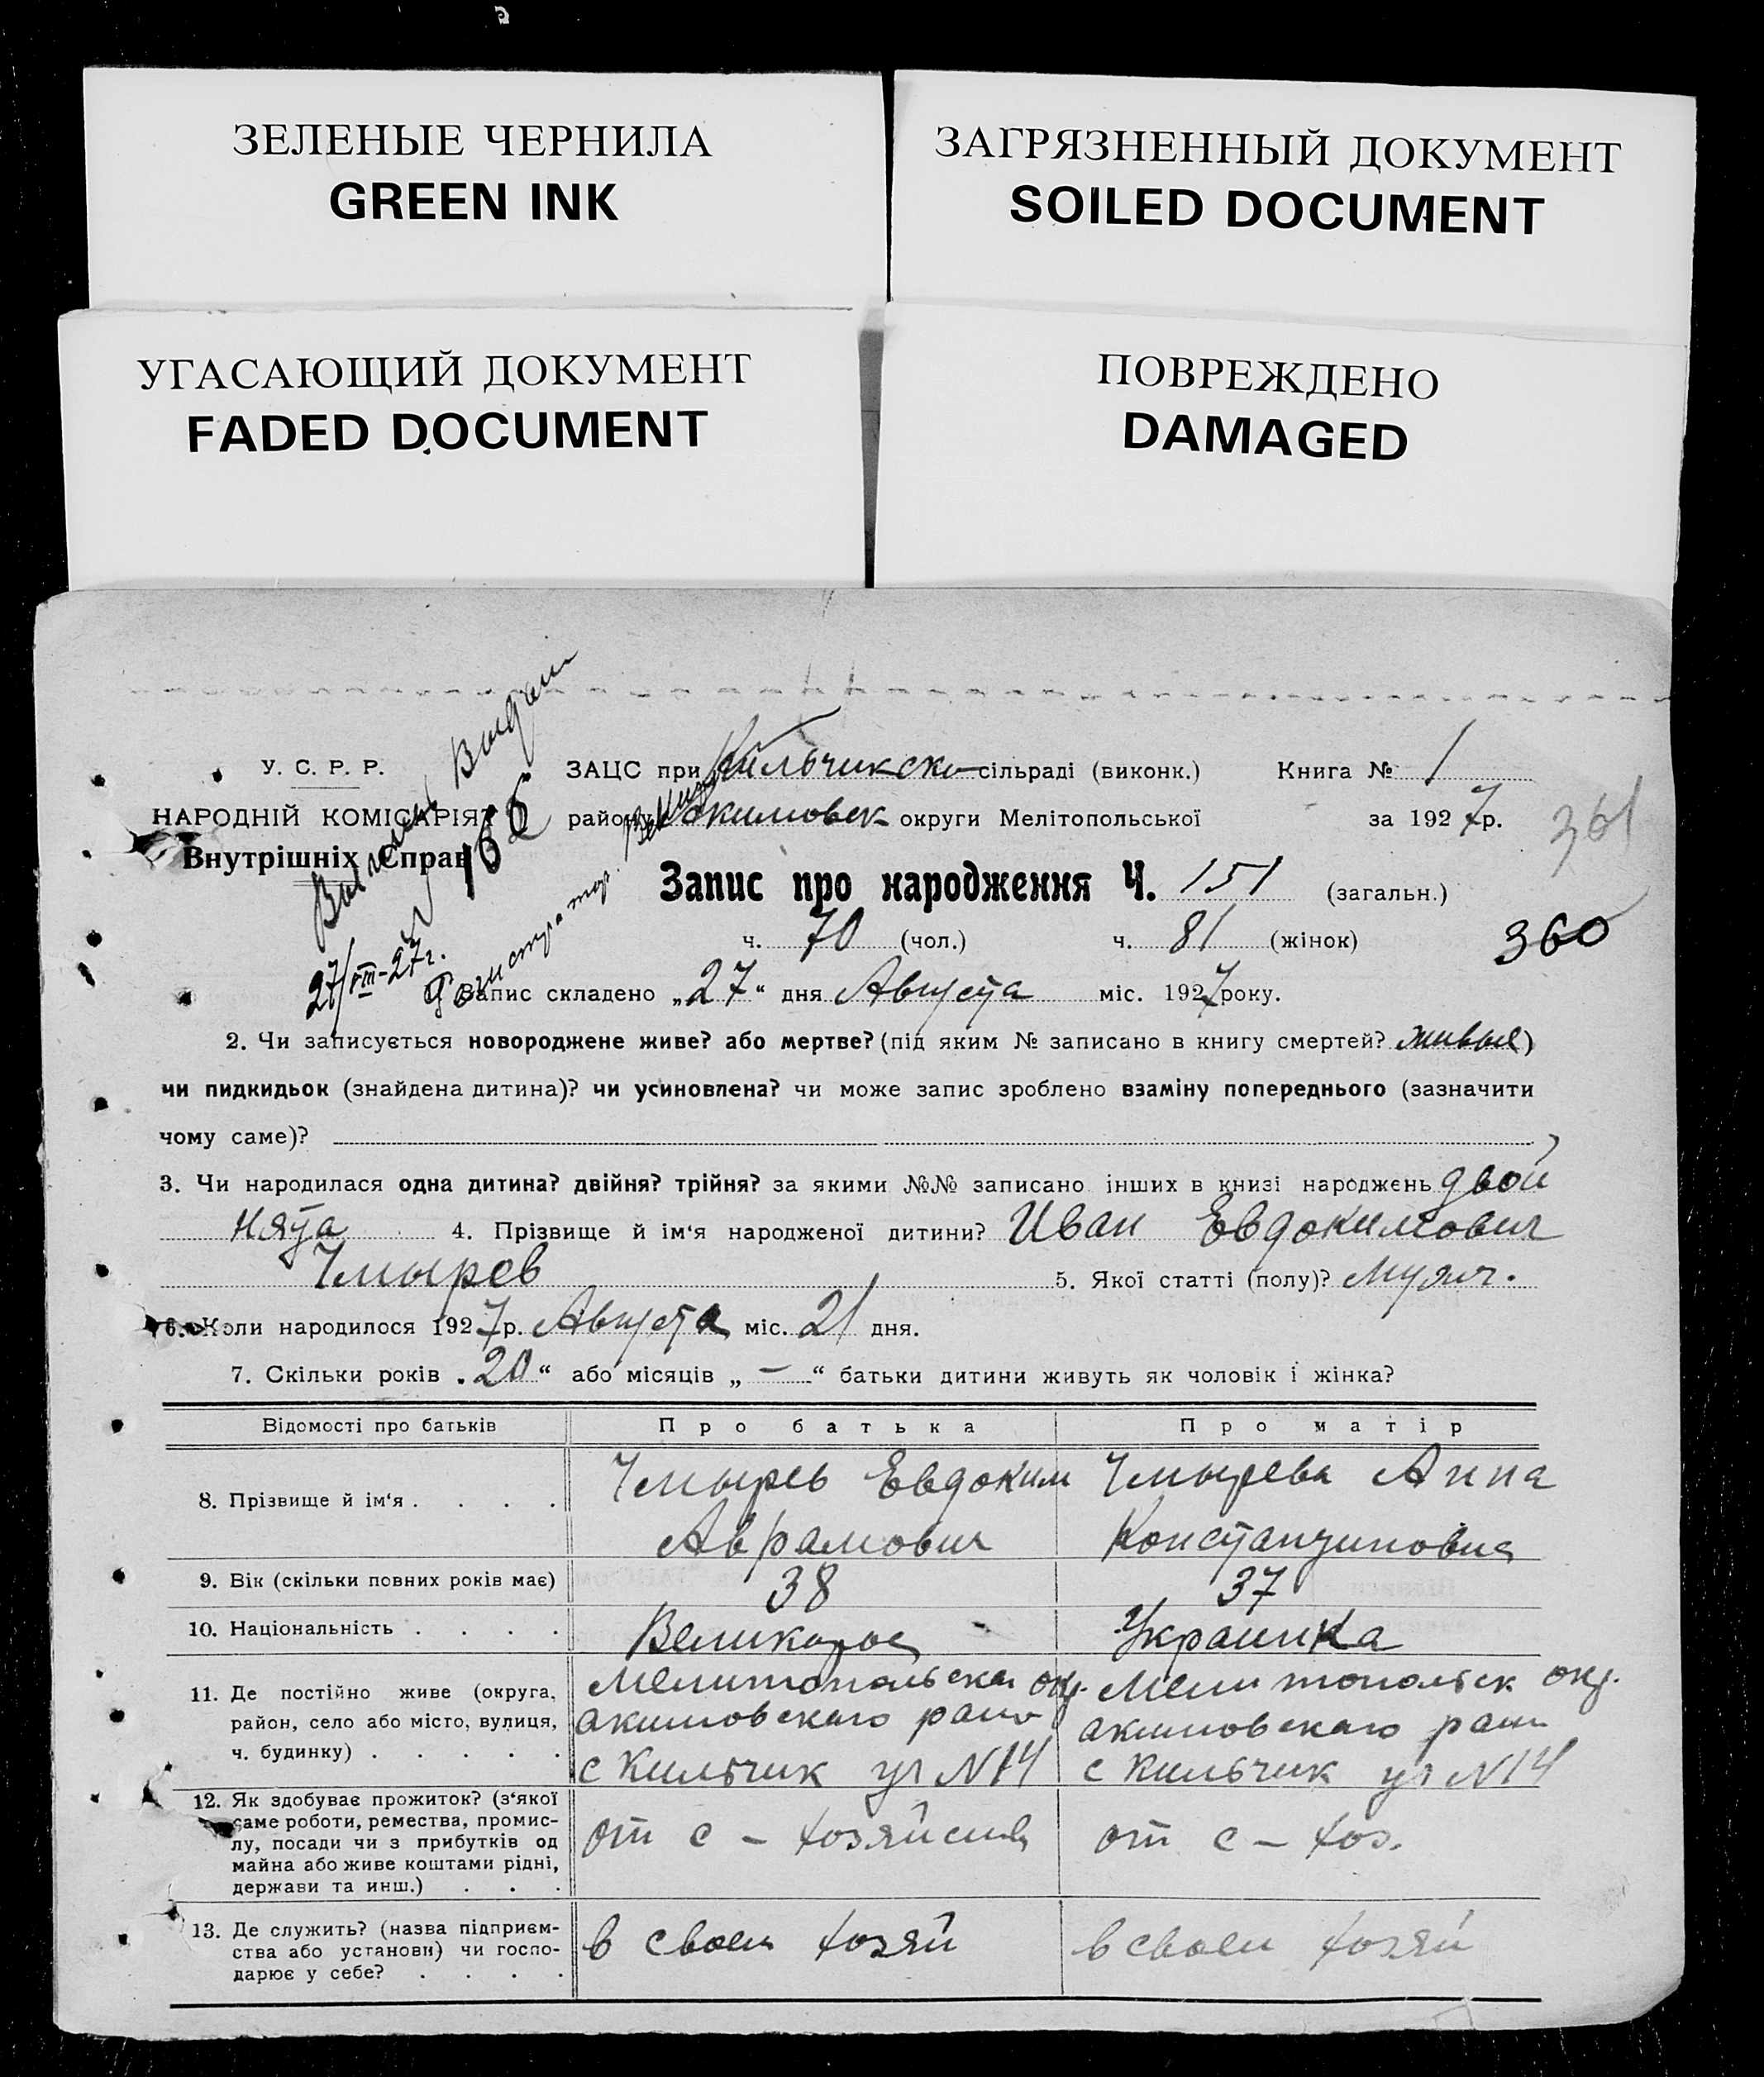 ЗЕЛЕНЫЕ ЧЕРНИЛА
GREEN INK
ЗАГРЯЗНЕННЫЙ ДОКУМЕНТ
SOILED DOCUMENT
УГАСАЮЩИЙ ДОКУМЕНТ
FADED DOCUMENT
ПОВРЕЖДЕНО
DAMAGED
У. С. Р. Р.
НАРОДНІЙ КОМІСАРІЯТ
Внутрішніх Справ
Выдан
27/VIII-27г.
ЗАЦС при Кильчикско сільраді (виконк.) Книга № 1
району Акимовск округи Мелітопольської за 1927р.
361
Запис про народження Ч. 151 (загальн.)
ч. 70 (чол.) ч. 81 (жінок)
360
Запис складено „27“ дня Августа міс. 1927 року.
2. Чи записується новороджене живе? або мертве? (під яким № записано в книгу смертей? живые)
чи пидкидьок (знайдена дитина)? чи усиновлена? чи може запис зроблено взаміну попереднього (зазначити
чому саме)?
3. Чи народилася одна дитина? двійня? трійня? за якими №№ записано інших в книзі народжень двой
нята 4. Прізвище й ім‘я народженої дитини? Иван Евдокимович
Чмырев 5. Якої статті (полу)? Мужч.
6. Коли народилося 1927р. Августа міс. 21 дня.
7. Скільки років „20“ або місяців „—“ батьки дитини живуть як чоловік і жінка?
Відомості про батьків Про батька Про матір
8. Прізвище й ім‘я . . . . Чмырев Евдоким Аврамович Чмырева Анна Константиновна
9. Вік (скільки повних років має) 38 37
10. Національність . . . . Великорос Украинка
11. Де постійно живе (округа,
район, село або місто, вулиця,
ч. будинку) . . . . .
Мелитопольская окр.
акимовскаго рано
с Кильчик ул N14
Мелитопольск окр.
акимовскаго раин
с Кильчик ул N14
12. Як здобуває прожиток? (з‘якої
саме роботи, ремества, промис-
лу, посади чи з прибутків од
майна або живе коштами рідні,
держави та инш.) . . .
от с - хозяйства
от с - хоз.
13. Де служить? (назва підприєм-
ства або установи) чи госпо-
дарює у себе? . . . .
в своем хозяй
в своем хозяй